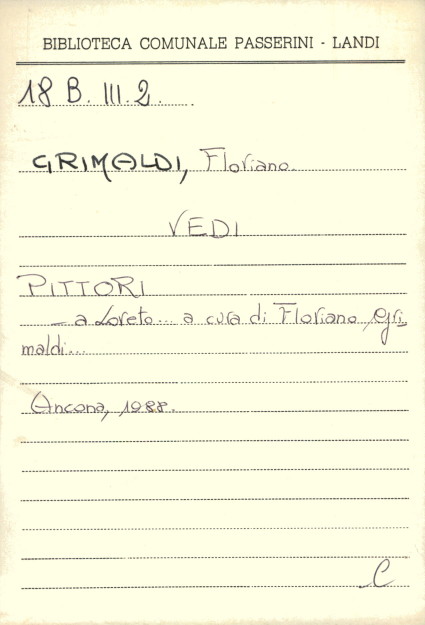 BIBLIOTECA COMUNALE PASSERINI - LANDI
18 B. III. 2.
GRIMALDI, Floriano.
VEDI
PITTORI
— a Loreto... a cura di Floriano Gri-
maldi...
Ancona, 1988.
C